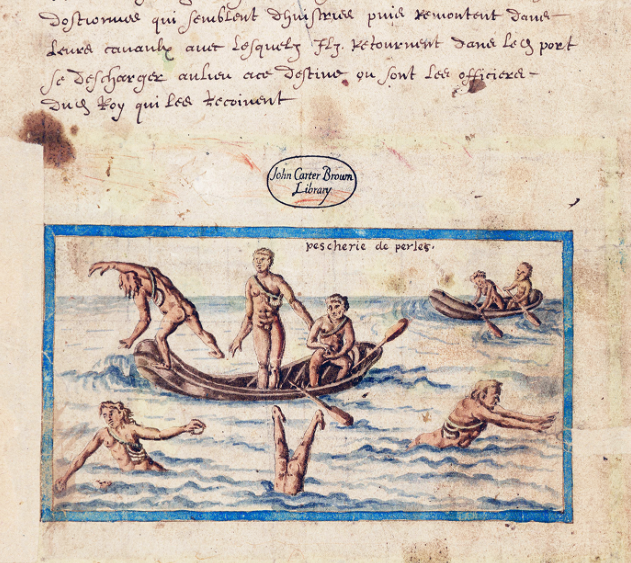 dostiormes qui semblent dhuistries puis Remontent dans
Leurs canaulx avec Lesquelz Ilz Retournent dans led port
se descharger aulieu ace destine ou sont les officiers
dud Roy qui les Recoivent
John Carter Brown
Library
pescherie de perles.